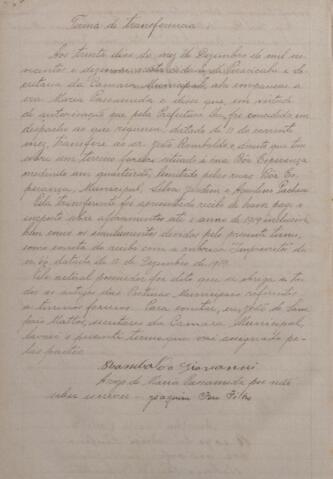 Termo de transferencia
Aos trinta dias do mez de Dezembro de mil no-
vecentos e dezenove nesta cidade de Piracicaba e se-
cretaria da Camara Municipal, ahi compareceu a
sra Maria Passamuda e disse que em virtude
de autorisação que pela Prefeitura lhe foi concedida em
despacho ao seu requerim. datado de 11 do corrente
mez, transfere ao sr. João Romboldo o direito que tem
sobre um terreno foreiro situado á rua Bôa Esperança
medindo um quarteirão, limitado pelas ruas Bôa Es-
perança, Municipal, Silva Jardim e
Pela transferente foi apresentado recibo de haver pago o
imposto sobre aforamentos até o anno de 1919 inclusive
bem como os emolumentos devidos pelo presente termo,
como consta do recibo com a rubrica Impostos de
no datado de de Dezembro de 1919.
Pelo actual possuidor foi dito que se obriga a to-
dos os artigos das Posturas Municipaes referentes
a terrenos foreiros. Para constar, eu, João de Sam-
paio Mattos, secretario da Camara Municipal,
lavrei o presente termo que vae assignado pe-
las partes.
Giovanni
A rogo de Maria Passamuda por não
saber escrever - Joaquim Filho